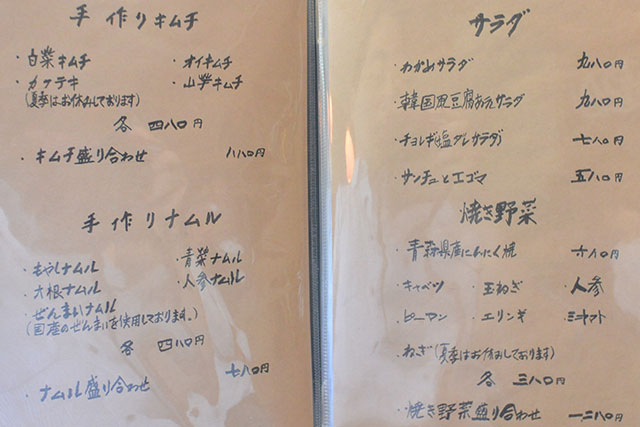 手作りキムチ
・白菜キムチ ・オイキムチ
・カクテキ ・山芋キムチ
(夏季はお休みしております)
各 四八〇円
・キムチ盛り合わせ 八八〇円
手作りナムル
・もやしナムル ・青菜ナムル
・大根ナムル ・人参ナムル
・ぜんまいナムル
(国産のぜんまいを使用しております。)
各 四八〇円
・ナムル盛り合わせ 七八〇円
サラダ
・わかめサラダ 九八〇円
・韓国風豆腐サラダ 九八〇円
・チョレギ塩ダレサラダ 七八〇円
・サンチュとエゴマ 五八〇円
焼き野菜
・青森県産にんにく焼 六八〇円
・キャベツ ・玉ねぎ ・人参
・ピーマン ・エリンギ ・ミニトマト
・ねぎ(夏季はお休みしております)
各 三八〇円
・焼き野菜盛り合わせ 一二八〇円